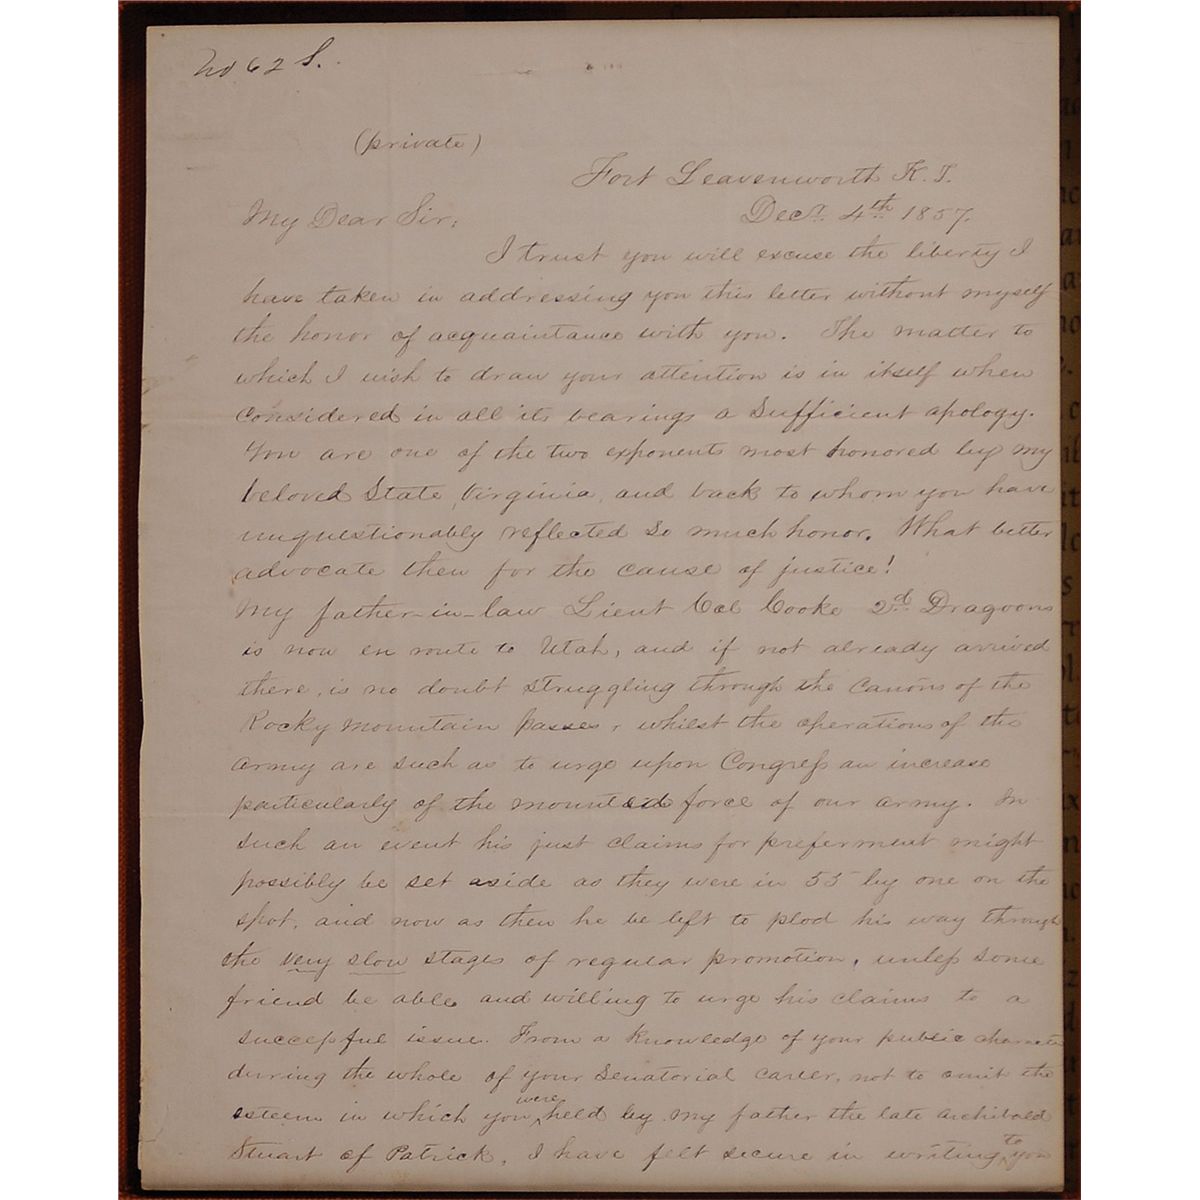 No 62 S.
(private)
Fort Leavenworth K. T.
My Dear Sir; Decr. 4th 1857.
I trust you will excuse the liberty I
have taken in addressing you this letter without myself
the honor of acquaintance with you. The matter to
which I wish to draw your attention is in itself when
considered in all its bearings a sufficient apology.
You are one of the two exponents most honored by my
beloved State, Virginia, and back to whom you have
unquestionably reflected so much honor. What better
advocate then for the cause of justice!
My father-in-law Lieut Col Cooke 2d. Dragoons
is now en route to Utah, and if not already arrived
there, is no doubt struggling through the cañons of the
Rocky Mountain passes, whilst the operations of the
army are such as to urge upon Congress an increase
particularly of the mounted force of our army. In
such an event his just claims for preferment might
possibly be set aside as they were in 55 by one on the
spot, and now as then he be left to plod his way through
the very slow stages of regular promotion, unless some
friend be able and willing to urge his claims to a
successful issue. From a knowledge of your public character
during the whole of your Senatorial career, not to omit the
esteem in which you were held by my father the late Archibald
Stuart of Patrick, I have felt secure in writing to you